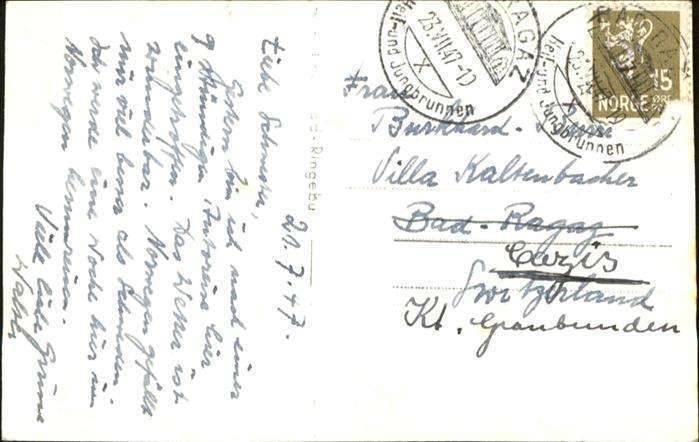 21.7.47.
Liebe Schwester,
Gestern bin ich nach einer
9 stündigen Autoreise hier
eingetroffen. Das Wetter ist
wunderbar. Norwegen gefällt
mir viel besser als Schweden.
Ich werde eine Woche hier in
Norwegen
Viele liebe Grüsse
Ringebu
RAGAZ
23.VII.47-12
X
Heil- und Jungbrunnen
RAGAZ
23.VII.47-12
X
Heil- und Jungbrunnen
15
NORGE ØRE
Frau
Burkhard
Villa Kaltenbacher
Bad-Ragaz
Cazis
Switzerland
Kt. Graubunden